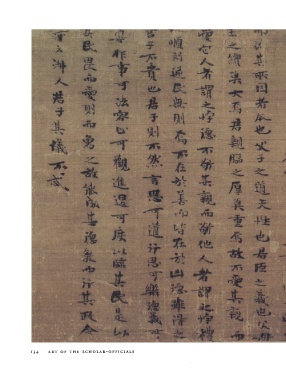 其所因者本也父子之道天性也君臣之義也父母
生之續莫大焉君親臨之厚莫重焉故不愛其親而
愛它人者謂之悖德不敬其親而敬他人者謂之悖禮
順則逆民無則焉不在於善而皆在於凶德雖得之
君子不貴也君子則不然言思可道行思可樂德義可
尊作事可法容止可觀進退可度以臨其民是以
其民畏而愛則而象之故能成其德教而行其政令
詩云淑人君子其儀不忒
134 ART OF THE SCHOLAR-OFFICIALS